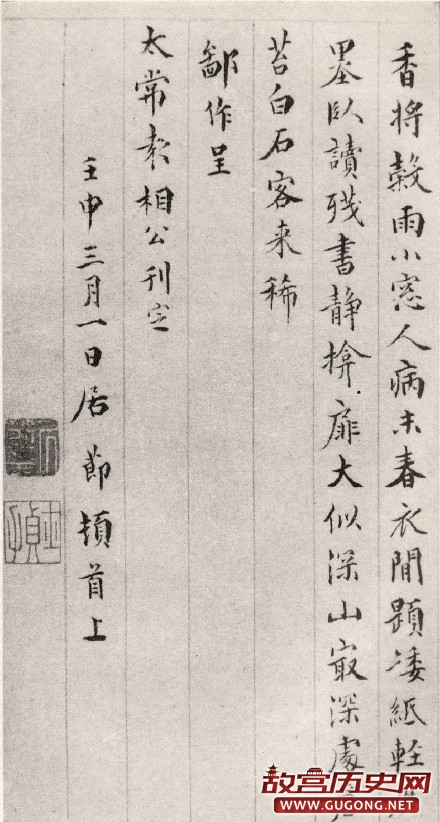 香將穀雨小窓人病未春衣閒題凄紙輕
墨臥讀殘書静揜扉大似深山冣深處
苔白石客来稀
鄙作呈
太常相公刊定
壬申三月一日居節頓首上
士貞
故宫历史网
WWW.GUGONG.NET